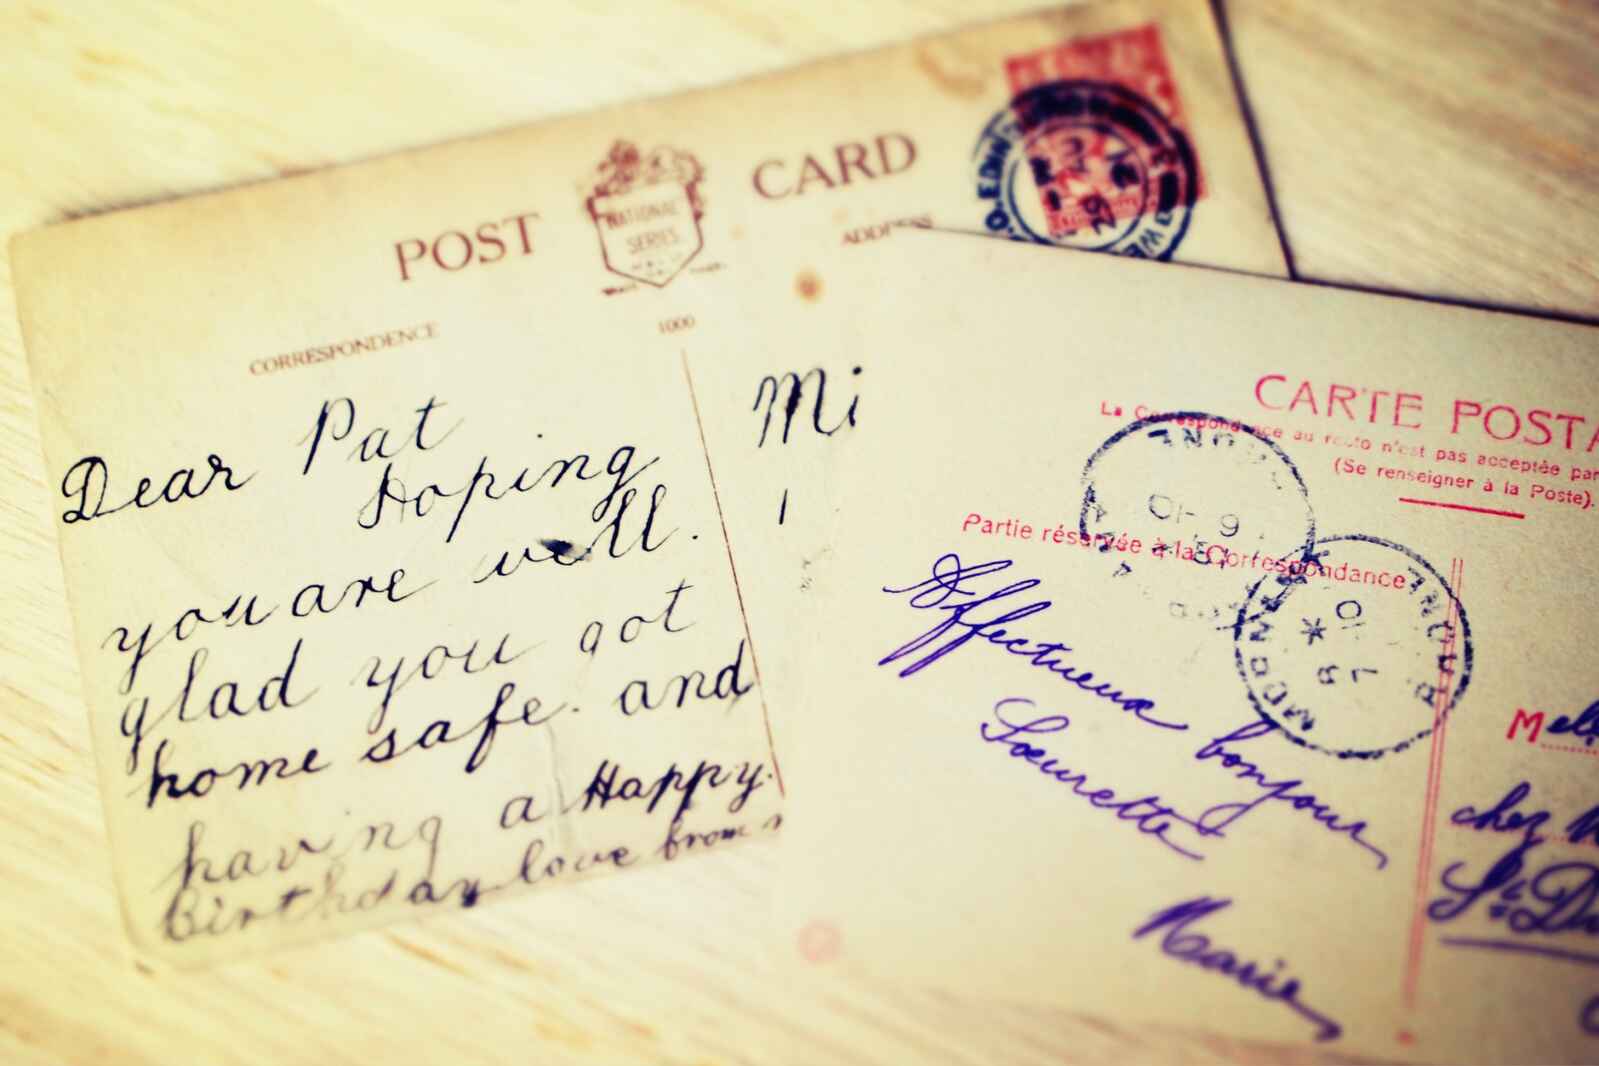 POST CARD
NATIONAL
SERIES
CORRESPONDENCE
1000
Dear Pat
Hoping
you are well.
glad you got
home safe. and
having a Happy.
Birthday love from
Mi
CARTE POSTA
La Correspondance au recto n'est pas acceptée par
(Se renseigner à la Poste).
Partie réservée à la Correspondance
Affectueux bonjour
Sœurette
Marie
chez
St D